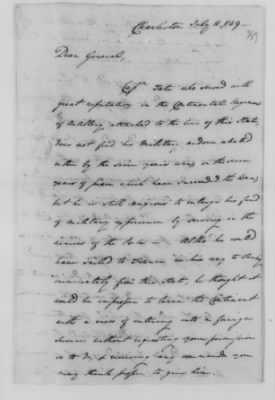 Charleston July 11 1789
Dear General,
Capt. Tate who served with
great reputation in the Continental Regiment
of Artillery attached to the line of this State,
does not find his military ardour abated
either by the seven years war, or the seven
years of peace which have succeeded the war,
but he is still anxious to enlarge his fund
of military experience by serving in the
armies of the
Altho he could
have sailed to France in his way to
immediately from this State, he thought it
would be improper to leave the Continent
with a view of entering into a foreign
service without requesting your permission
so to do, & receiving any commands you
may think proper to give him.